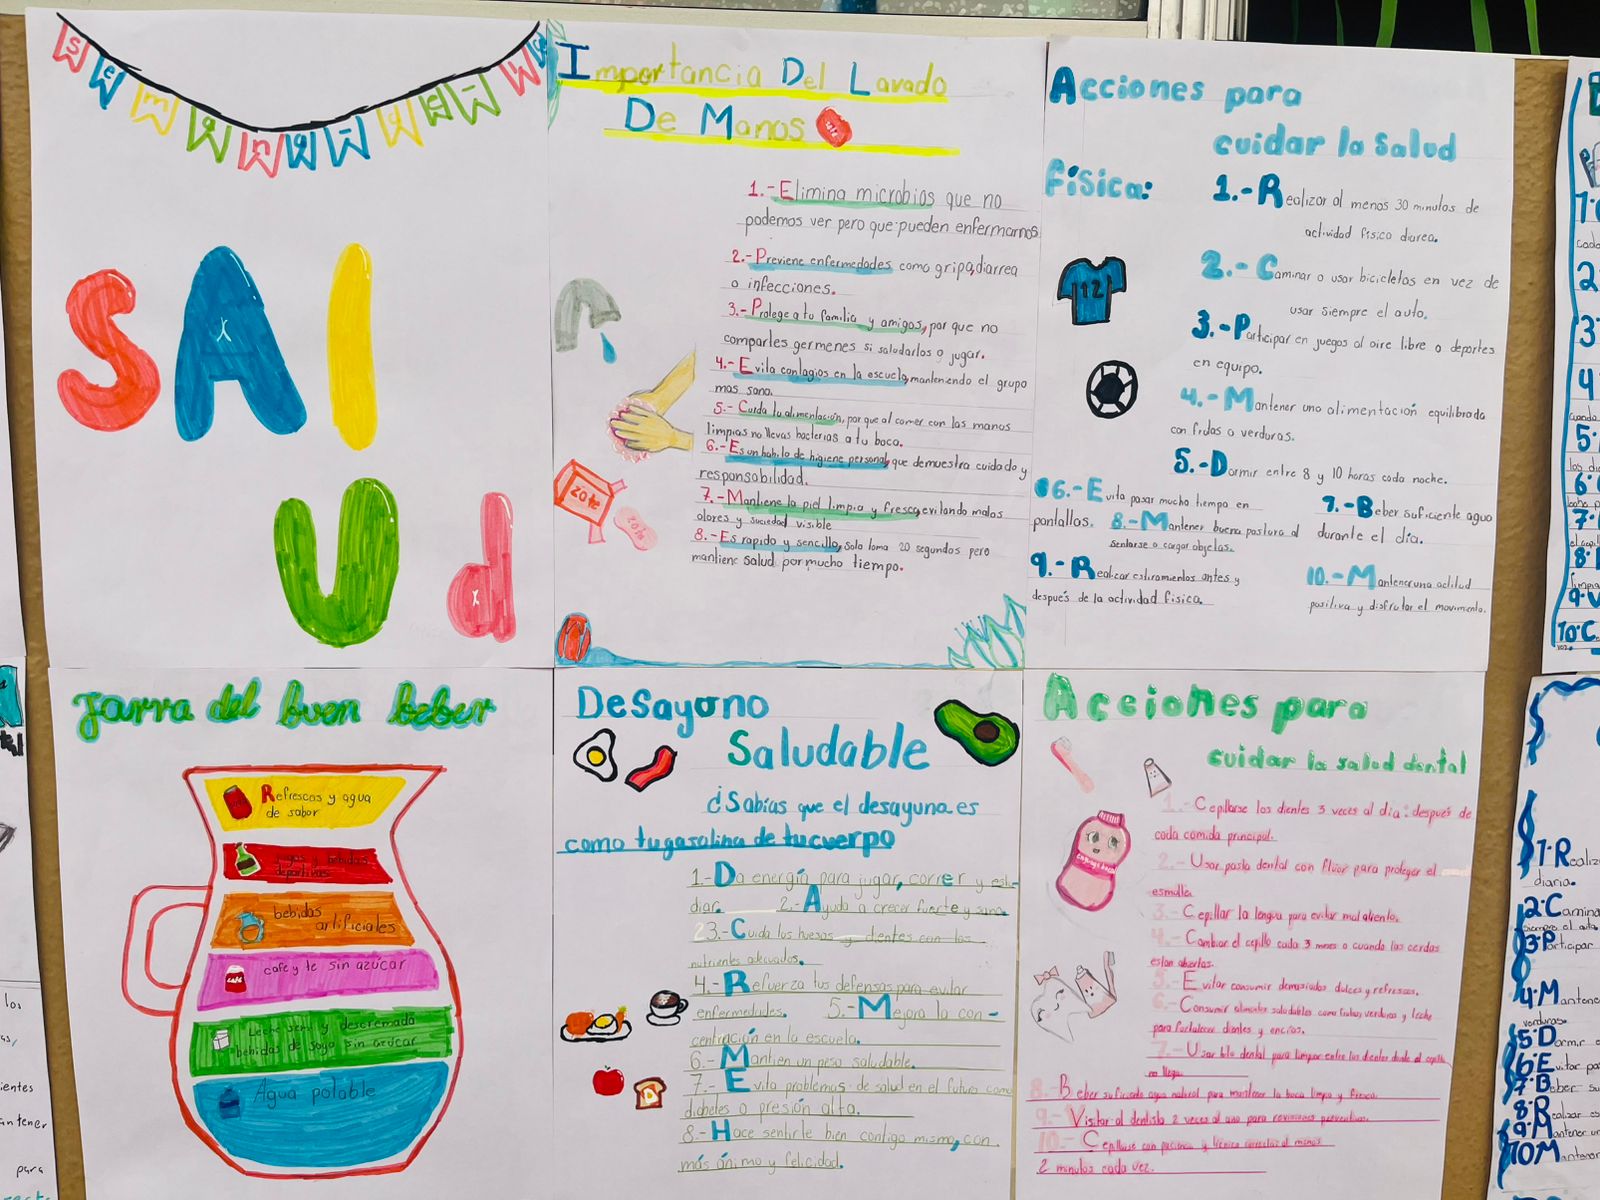 Semana de la
SAlUd
Importancia Del Lavado
De Manos
1.- Elimina microbios que no
podemos ver pero que pueden enfermarnos
2.- Previene enfermedades como gripa, diarrea
o infecciones.
3.- Protege a tu familia y amigos, por que no
compartes germenes si saludarlos o jugar.
4.- Evita contagios en la escuela, manteniendo el grupo
mas sano.
5.- Cuida tu alimentación, por que al comer con las manos
limpias no llevas bacterias a tu boca.
6.- Es un habito de higiene personal, que demuestra cuidado y
responsabilidad.
7.- Mantiene la piel limpia y fresca, evitando malos
olores y suciedad visible
8.- Es rapido y sencillo, solo toma 20 segundos pero
mantiene salud por mucho tiempo.
zote
zote
Acciones para
cuidar la Salud
física:
1.- Realizar al menos 30 minutos de
actividad fisica diarea.
2.- Caminar o usar bicicletas en vez de
usar siempre el auto.
3.- Participar en juegos al aire libre o deportes
en equipo.
4.- Mantener una alimentación equilibrada
con frutas o verduras.
5.- Dormir entre 8 y 10 horas cada noche.
6.- Evita pasar mucho tiempo en
pantallas.
7.- Beber suficiente agua
durante el día.
8.- Mantener buena postura al
sentarse o cargar objetos.
9.- Realizar estiramientos antes y
después de la actividad física.
10.- Mantener una actitud
positiva y disfrutar el movimiento.
12
Jarra del buen beber
Refrescos y agua
de sabor
jugos y bebidas
deportivas
bebidas
artificiales
cafe y te sin azúcar
Leche semi y descremada
bebidas de soya sin azúcar
Agua potable
Desayuno
Saludable
¿Sabias que el desayuna es
como tu gasolina de tu cuerpo
1.- Da energía para jugar, correr y estu-
diar. 2.- Ayuda a crecer fuerte y sano.
3.- Cuida los huesos y dientes con los
nutrientes adecuados.
4.- Refuerza tus defensas para evitar
enfermedades. 5.- Mejora la con-
centración en la escuela.
6.- Mantien un peso saludable.
7.- Evita problemas de salud en el futuro como
diabetes o presión alta.
8.- Hace sentirte bien contigo mismo, con
más ánimo y felicidad.
Acciones para
cuidar la salud dental
1.- Cepllarse los dientes 3 veces al dia: después de
cada comida principal.
2.- Usar pasta dental con fluor para proteger el
esmalte.
3.- Cepillar la lengua para evitar mal aliento.
4.- Cambiar el cepillo cada 3 meses o cuando las cerdas
estan abiertas.
5.- Evitar consumir demasiados dulces y refrescos.
6.- Consumir alimentos saludables como frutas, verduras y leche
para fortalecer dientes y encias.
7.- Usar hilo dental para limpiar entre los dientes donde el cepillo
no llega.
8.- Beber suficiente agua natural para mantener la boca limpia y fresca.
9.- Visitar al dentista 2 veces al año para revisiones preventivas.
10.- Cepillase con paciencia y técnica correcta al menos
2 minutos cada vez.